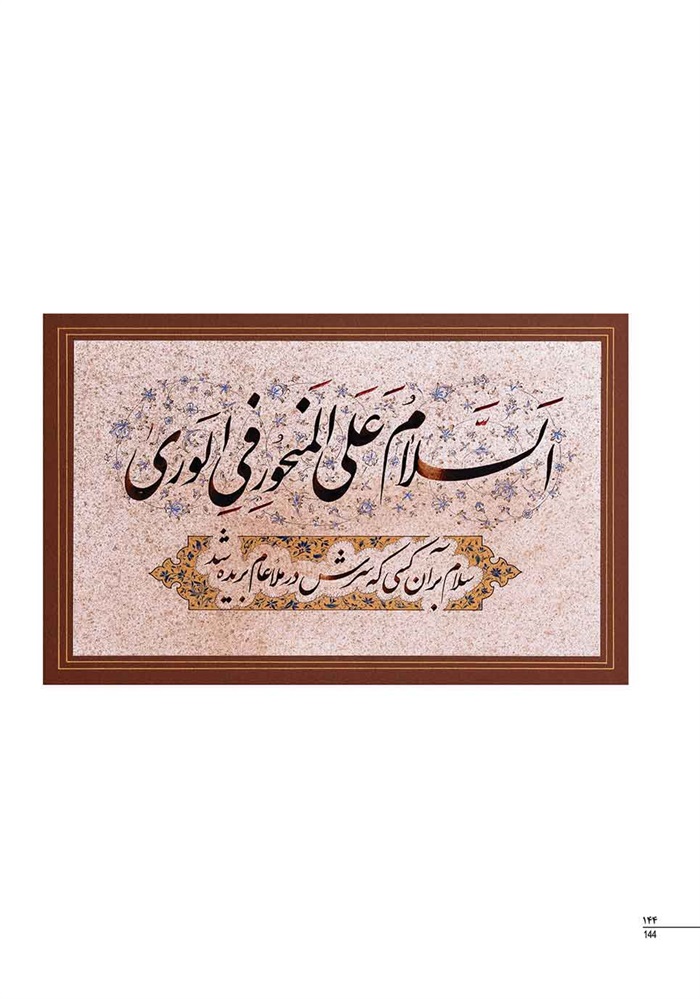 اَلسَّلامُ عَلَى الْمَنحُورِ فِي الوَرى
سلام بر آن کسی که سرش در ملاعام بریده شد
۱۴۴
144